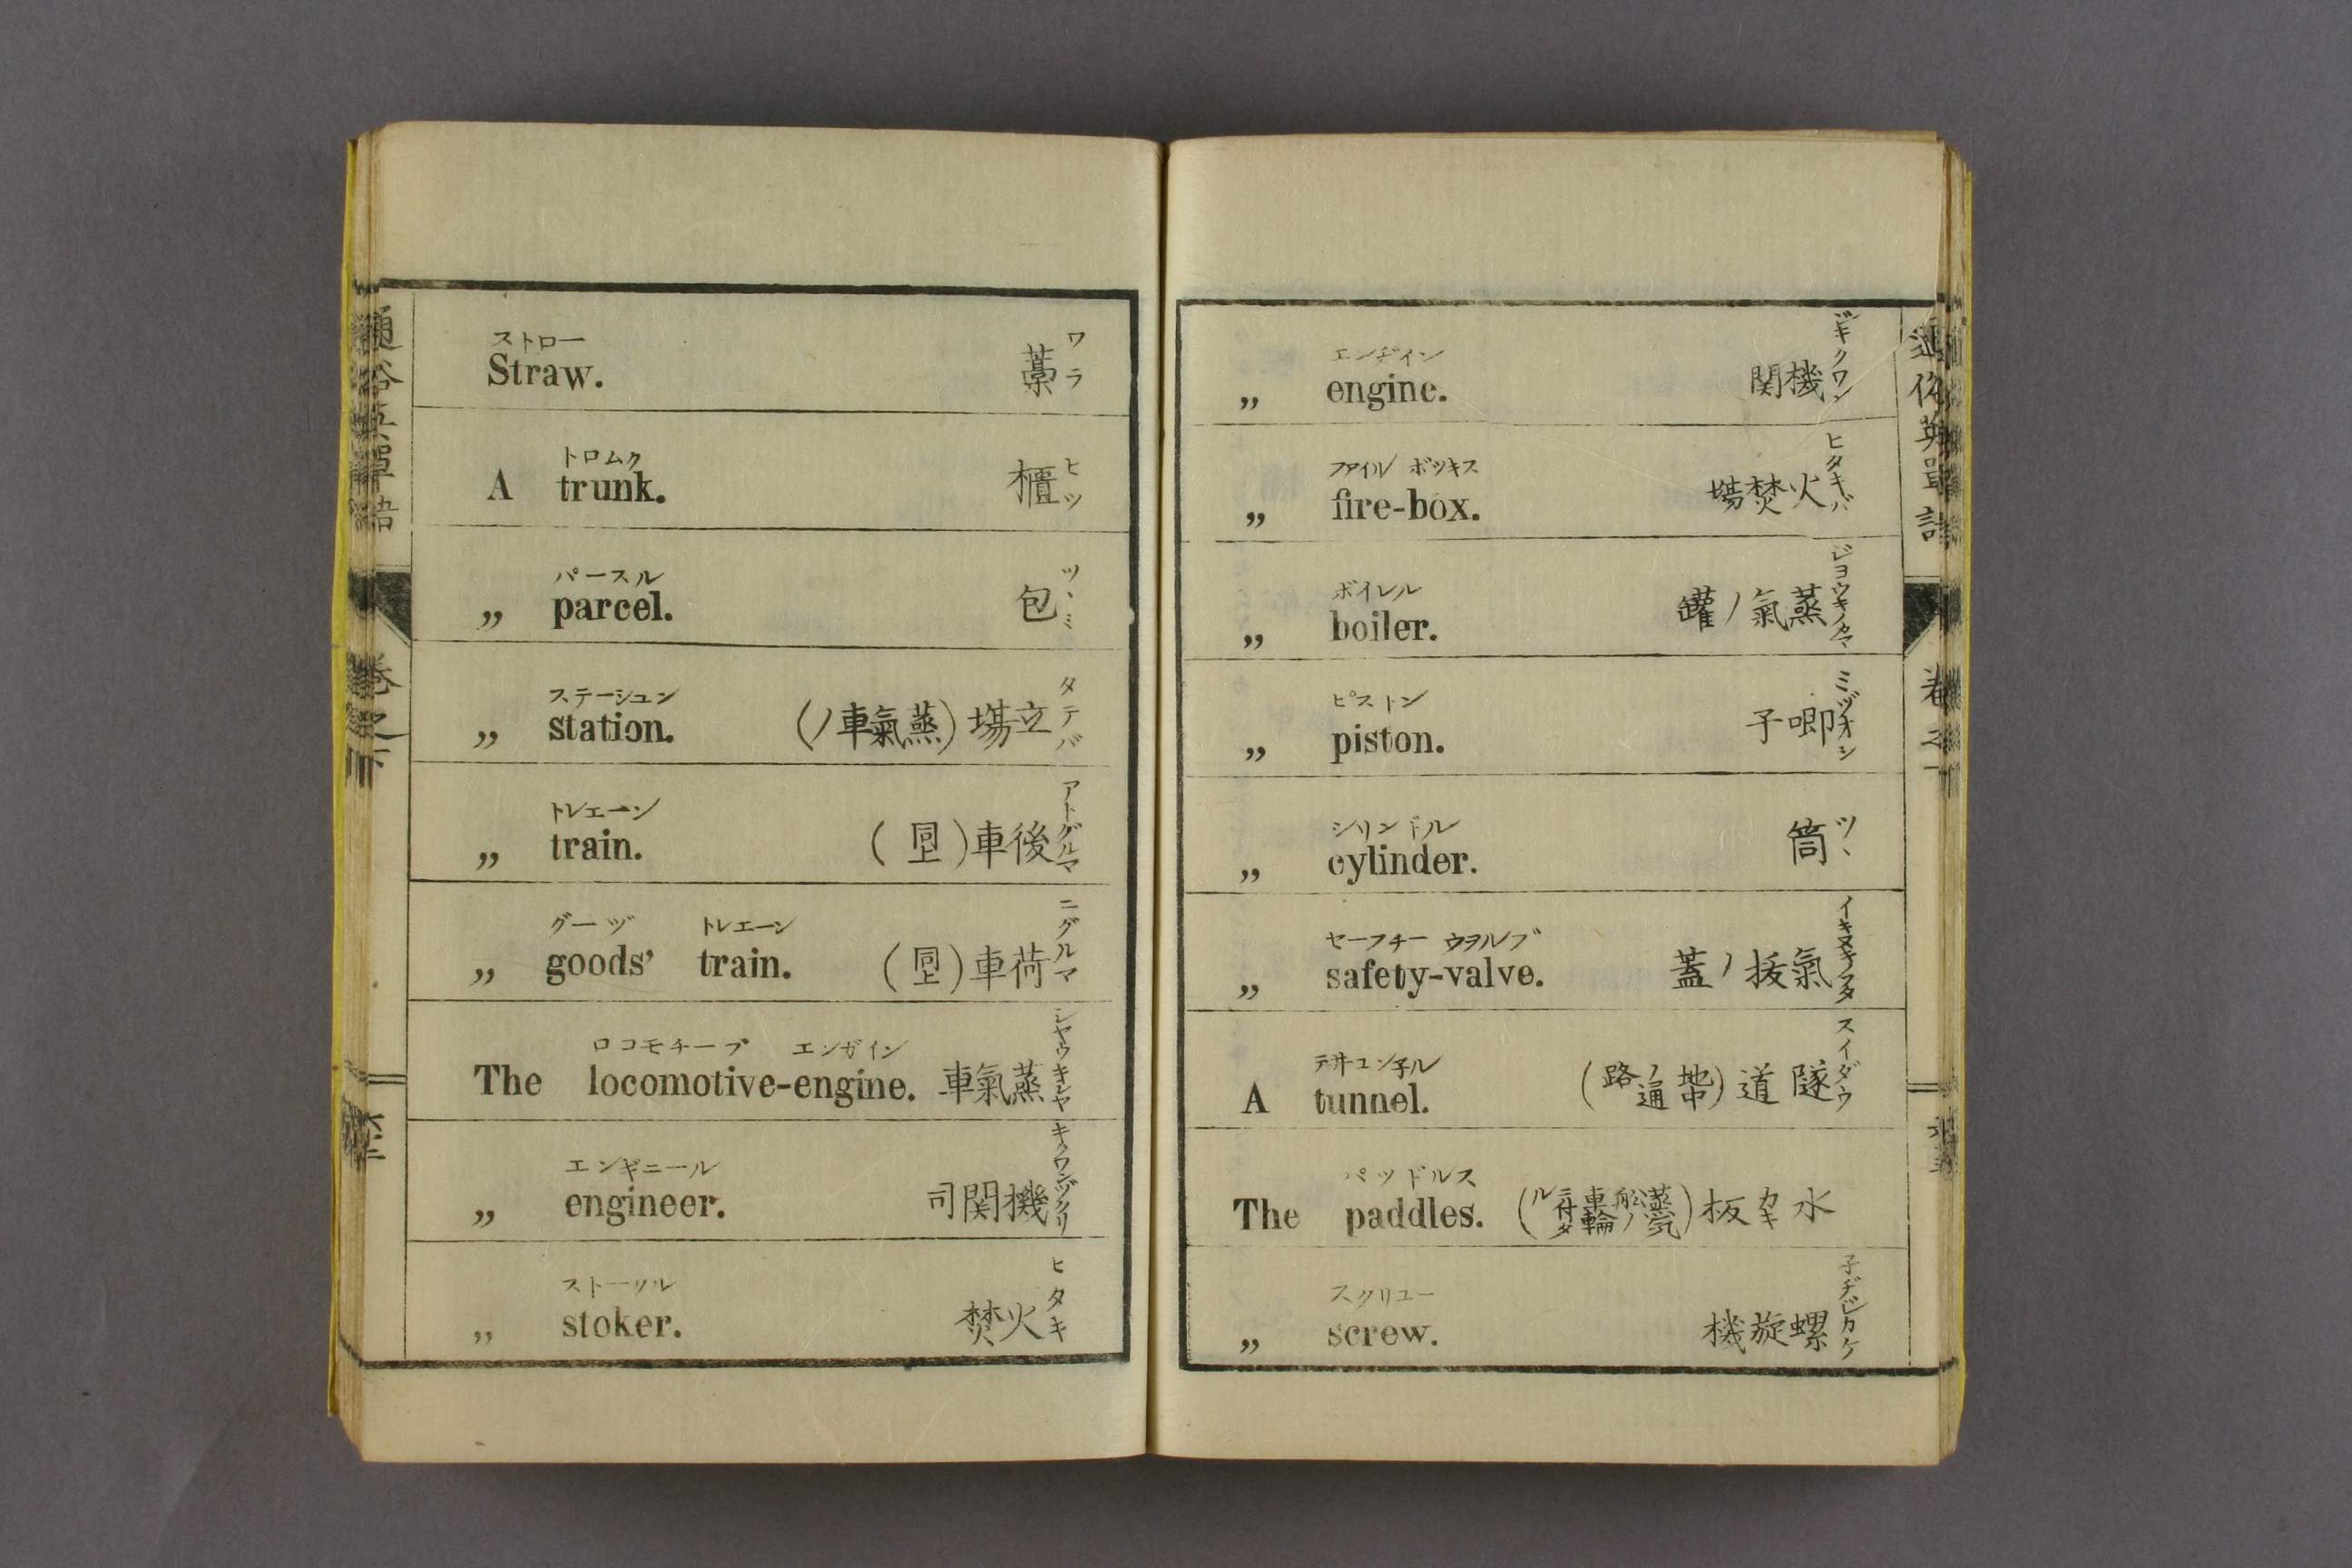 通俗英單語
卷之下
ストロー
Straw. 藁 ワラ
トロムク
A trunk. 櫃 ヒツ
パースル
„ parcel. 包 ツヽミ
ステーシュン
„ station. 立塲(蒸氣車ノ) タテバ
トレエーン
„ train. 後車(同上) アトグルマ
グーヅ トレエーン
„ goods' train. 荷車(同上) ニグルマ
ロコモチーブ エンガイン
The locomotive-engine. 蒸氣車 ジヤウキシヤ
エンギニール
„ engineer. 機関司 キクワンヅクリ
ストークル
„ stoker. 火焚 ヒタキ
エンヂイン
„ engine. 機関 キクワン
ファイル ボツキス
„ fire-box. 火焚塲 ヒタキバ
ボイレル
„ boiler. 蒸氣ノ罐 ジヨウキノカマ
ピストン
„ piston. 喞子 ミヅオシ
シリンドル
„ cylinder. 筒 ツヽ
セーフチー ウヲルブ
„ safety-valve. 氣拔ノ蓋 イキヌキノフタ
テ井ユン子ル
A tunnel. 隧道(地中ノ通路) スイダウ
パッドルス
The paddles. 水カキ板(蒸気舩ノ車輪ニ付タル)
スクリユー
„ screw. 螺旋機 子ヂシカケ
通俗英單語
卷之